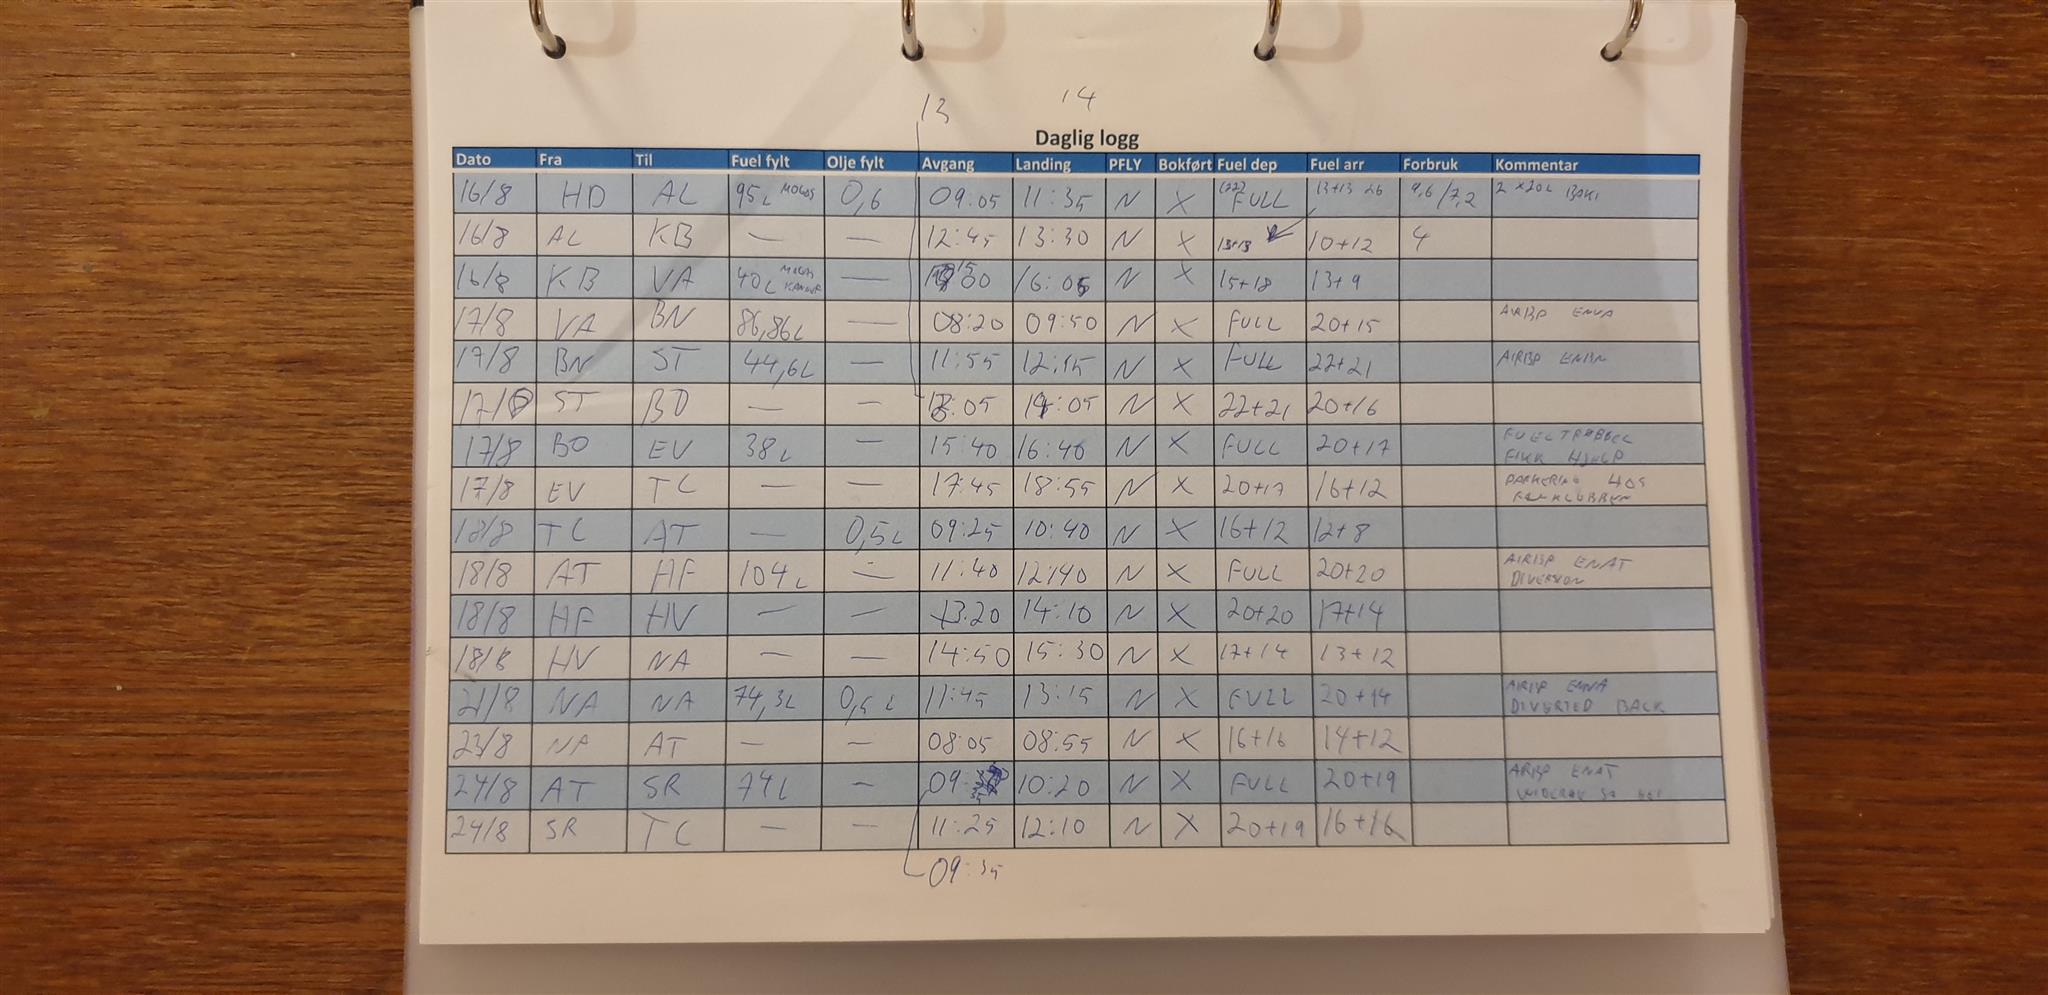 13 14
Daglig logg
Dato Fra Til Fuel fylt Olje fylt Avgang Landing PFLY Bokført Fuel dep Fuel arr Forbruk Kommentar
16/8 HD AL 95L MOGAS 0,6 09:05 11:35 N X (22) FULL 13+13 26 9,6/7,2 2 x20L BAKI
16/8 AL KB — — 12:45 13:30 N X 13+13 10+12 4
16/8 KB VA 40L — 15:00 16:05 N X 15+18 13+9
17/8 VA BN 86,86L — 08:20 09:50 N X FULL 20+15 AIRBP ENVA
17/8 BN ST 44,6L — 11:55 12:15 N X FULL 22+21 AIRBP ENBN
17/8 ST BO — — 13:05 14:05 N X 22+21 20+16
17/8 BO EV 38L — 15:40 16:40 N X FULL 20+17 FUELTRØBBEL
FIKK HJELP
17/8 EV TC — — 17:45 18:55 N X 20+17 16+12 PARKERING 405
FLYKLUBBEN
18/8 TC AT — 0,5L 09:25 10:40 N X 16+12 12+8
18/8 AT HF 104L — 11:40 12:40 N X FULL 20+20 AIRBP ENAT
DIVERSION
18/8 HF HV — — 13:20 14:10 N X 20+20 17+14
18/8 HV NA — — 14:50 15:30 N X 17+14 13+12
21/8 NA NA 74,3L 0,5L 11:45 13:15 N X FULL 20+14 AIRBP ENNA
DIVERTED BACK
23/8 NA AT — — 08:05 08:55 N X 16+16 14+12
24/8 AT SR 74L — 09: 10:20 N X FULL 20+19 AIRBP ENAT
24/8 SR TC — — 11:25 12:10 N X 20+19 16+16
09:35